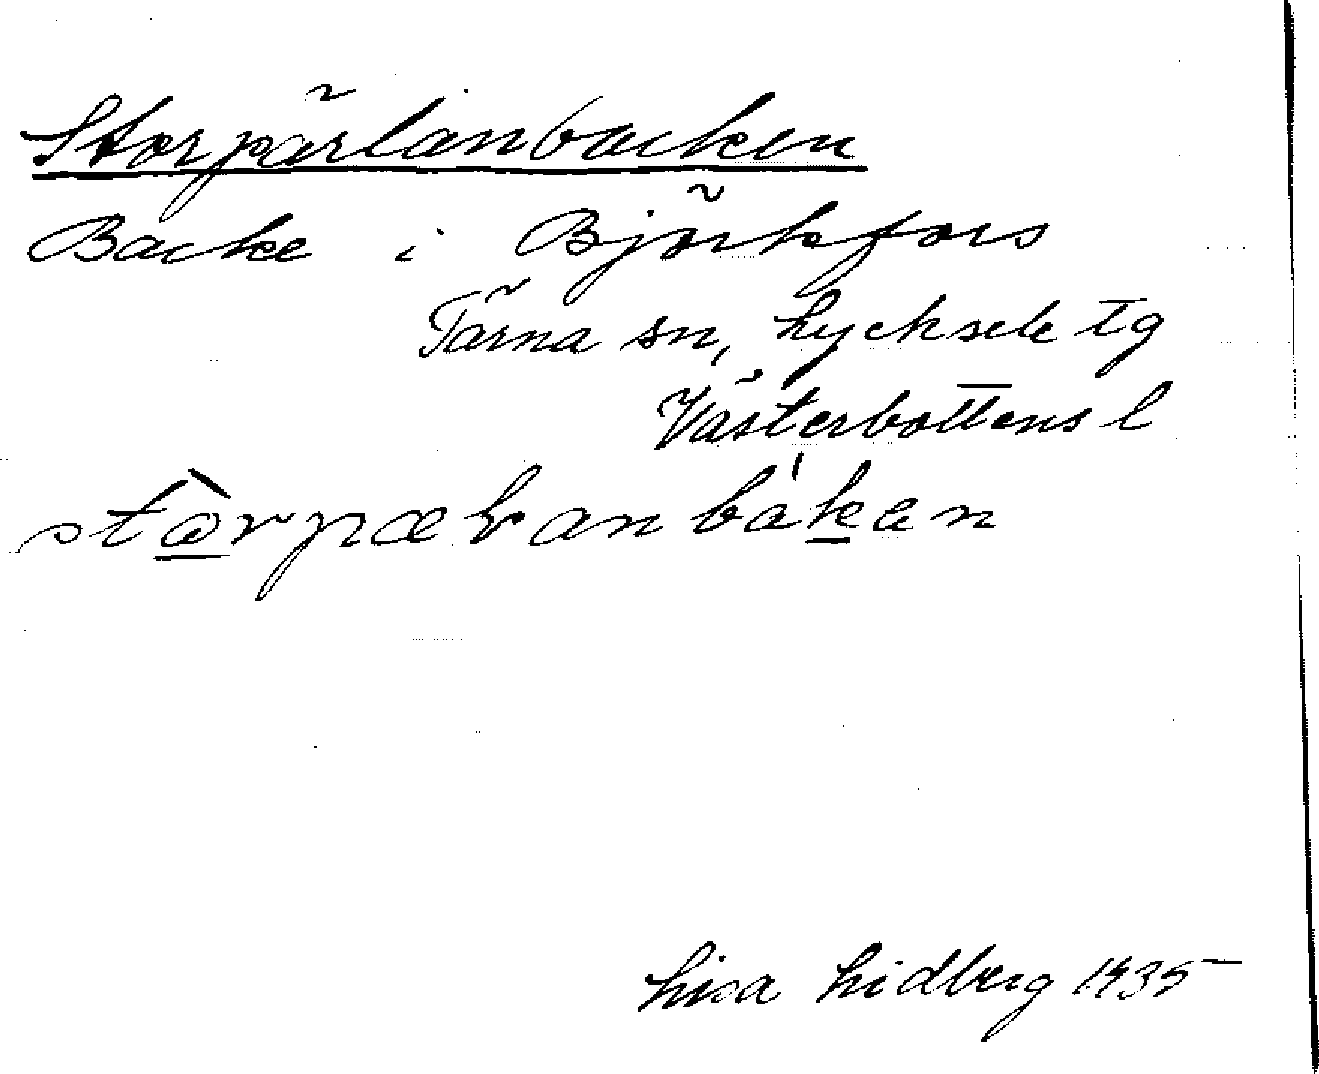 Storpärlanbacken
Backe i Björkfors
Tärna sn, Lycksele tg
Västerbottens l
Lisa Lidberg 1935